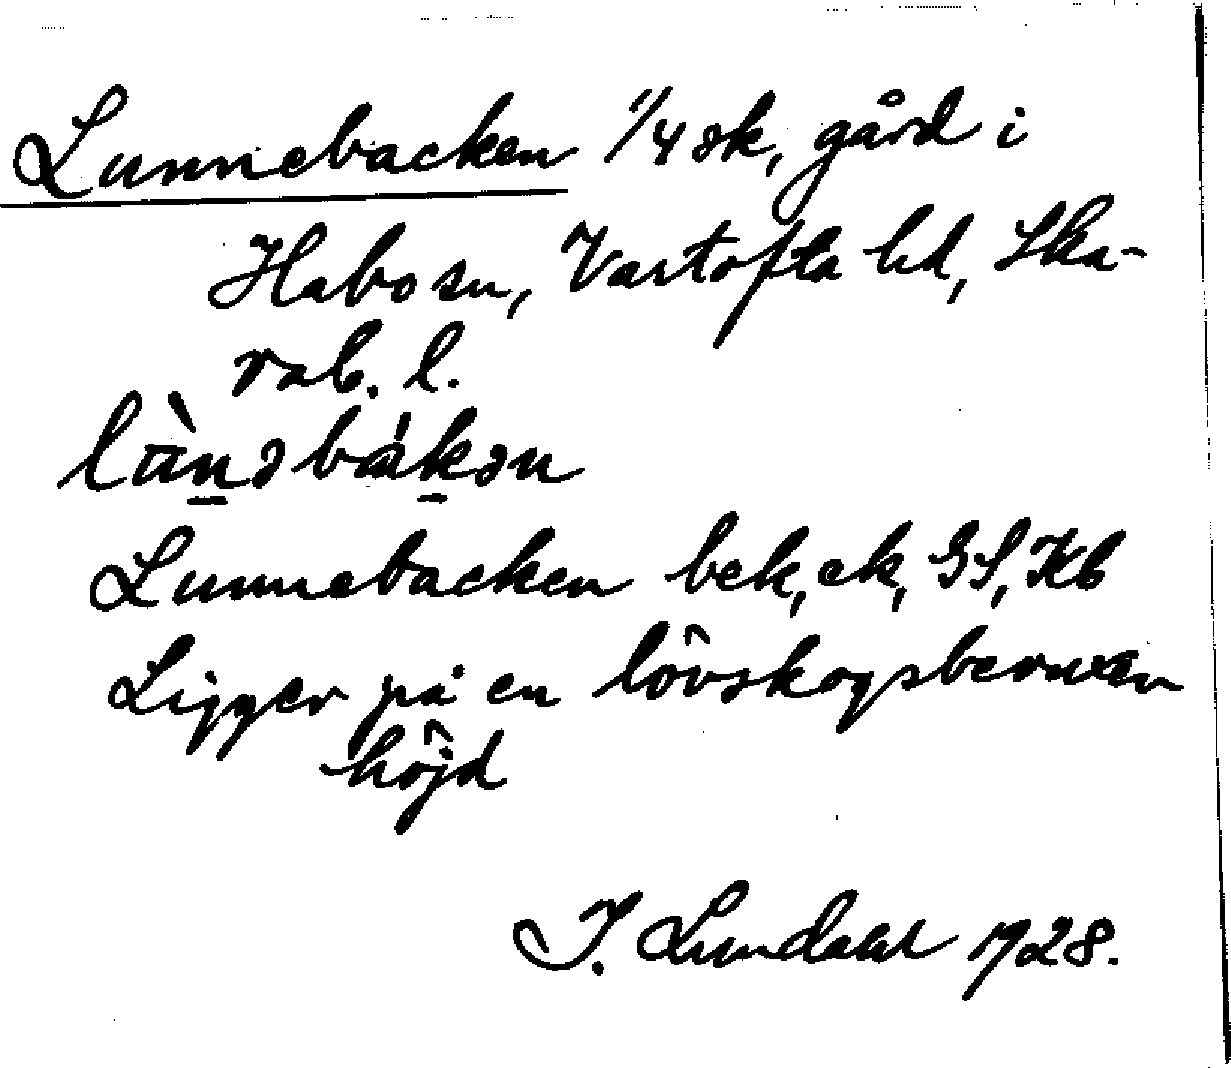 Lunnebacken 1/4 sk, gård i
Habo sn, Vartofta hd, Ska-
rab. l.
Lunnebacken bek, ek, GS, Kb
Ligger på en lövskogsbevuxen
höjd
I. Lundahl 1928.